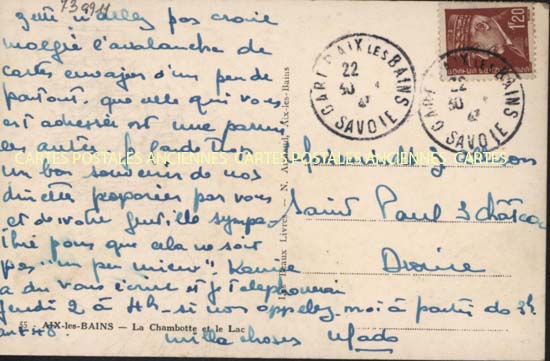 739911
pas croire
malgré l'avalanche de
cartes envoyées d'un peu de
partout, que celle qui vous
est adressée est une parmi
les autres. Je garde très
un bon souvenir de nos
dinettes préparées par vous
et de votre gentille sympa-
thie pour que cela ne soit
pas "un peu mieux".
a dû vous écrire et je téléphonerai
jeudi 2 à 4h - si non appelez-moi à partir de 3h
mille choses Mado
Saint Paul 3 Château
Drome
1F20
GARE D'AIX LES BAINS
22
30
SAVOIE
GARE D'AIX LES BAINS
22
30
SAVOIE
CARTES POSTALES ANCIENNES CARTES POSTALES ANCIENNES CARTES POSTALES ANCIENNES
Les Beaux Livres - N. Aix-les-Bains
55 - AIX-les-BAINS - La Chambotte et le Lac